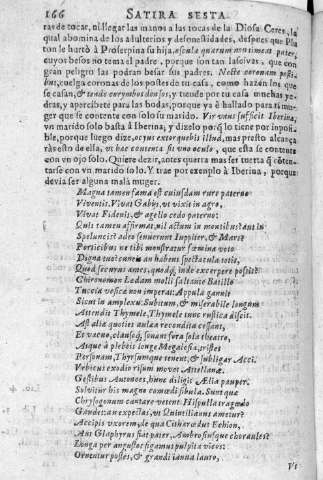 166 SATIRA SESTA
ras de tocar, ni llegar las manos a las tocas de la Diosa Ceres, la
qual abomina de los adulterios y desonestidades, despues que Plu
ton le hurtò à Proserpina su hija, oscula quarum non timeat pater,
cuyos besos no tema el padre, porque son tan lasciuas, que con
gran peligro las podran besar sus padres. Necte coronam posti-
bus, cuelga coronas de los postes de tu casa, como hazen los que
se casan, & tende corymbos densos, y tiende por tu casa muchas ye-
dras, y apercibete para las bodas, porque ya è hallado para ti mu-
ger que se contente con solo su marido. Vir vnus sufficit Iberina,
vn marido solo basta à Iberina, y dizelo porq̃ lo tiene por imposi-
ble, porque luego dize, ocyus extorquebis illud, mas presto alcança
ràs esto de ella, vt hæc contenta sit vno oculo, que esta se contente
con vn ojo solo. Quiere dezir, antes querra mas ser tuerta q̃ cõten-
tarse con vn marido solo. Y trae por exemplo à Iberina, porque
deuia ser alguna mala muger.
Magna tamen fama est cuiusdam rure paterno
Viuentis. Viuat Gabijs, vt vixit in agro,
Viuat Fidenis, & agello cedo paterno:
Quis tamen affirmat, nil actum in montibus tant in
Speluncis? adeo senuerunt Iuppiter, & Mars?
Porticibus ne tibi monstratur fœmina voto
Digna tuo? cuneis an habent spectacula totis,
Quod securus ames, quodq́, inde excerpere possis?
Chironomon Ledam molli saltante Batillo
Tuccia vesicæ non imperat, Appula gannit
Sicut in amplexu: Subitum, & miserabile longum
Attendit Thymele, Thymele tunc rustica discit.
Ast aliæ quoties aulæa recondita cessant,
Et vacuo, clausoq́, sonant fora sola theatro,
Atque à plebeis longe Megalesia, tristes
Personam, Thyrsumque tenent, & subligar Acci.
Vrbicus exodio risum mouet Atellanæ.
Gestibus Autonoes, hunc diligit Ælia pauper.
Soluitur his magno comœdi fibula. Sunt quæ
Chrysogonum cantare vetent. Hispulla tragœdo
Gaudet: an expectas, vt Quintilianus ametur?
Accipis vxorem, de qua Citharœdus Echion,
Aut Glaphyrus fiat pater, Ambrosiusque choraules?
Longa per angustos figamus pulpita vicos:
Ornentur postes, & grandi ianua lauro,
Vt